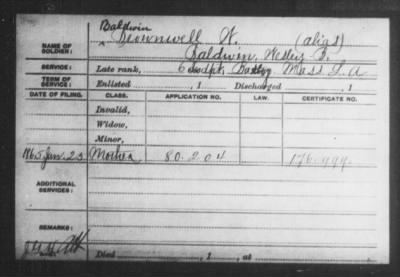 Baldwin
NAME OF SOLDIER: Brownwell W. (alias)
Baldwin, Wesley B.
SERVICE: Late rank, Indpt. Battery Mass L. A.
TERM OF SERVICE: Enlisted , 1 Discharged , 1
DATE OF FILING. CLASS. APPLICATION NO. LAW. CERTIFICATE NO.
Invalid,
Widow,
Minor,
1865 Jan. 23 Mother, 80.204 176.999
ADDITIONAL SERVICES:
REMARKS:
Died , 1 , at